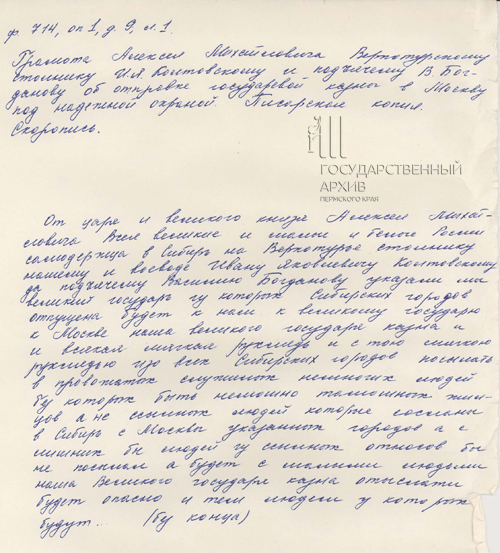 ф. 714, оп 1, д. 9, л. 1.
Грамота Алексея Михайловича Верхотурскому
стольнику И.Я. Колтовскому и подъячему В. Бог-
данову об отправке государевой казны в Москву
под надежной охраной. Писарская копия.
Скоропись.
ГОСУДАРСТВЕННЫЙ
АРХИВ
ПЕРМСКОГО КРАЯ
От царя и великого князя Алексея Михай-
ловича Всея великие и малыи и белыи Росии
самодержца в Сибирь на Верхотурье стольнику
нашему и воеводе Ивану Яковлевичу Колтовскому
да подъячему Василию Богданову указали мы
великий государь гу которых Сибирских городов
отпущена будет к нам к великому государю
к Москве наша великого государя казна и
и всякая мягкая рухлядь и с тою мягкою
рухлядью изо всех Сибирских городов посылать
в провожатых служилых немногих людей
бу которых быть немошно тамошних жил-
цов а не ссыльных людей которые сосланы
в Сибирь с Москвы указанных городов а с
лишних бы людей гу ссылных отнюдь бы
не посылал а будет с малыми людьми
наша Великого государя казна отпускати
будет опасно и тем людем у которых
будут... (бу конца)